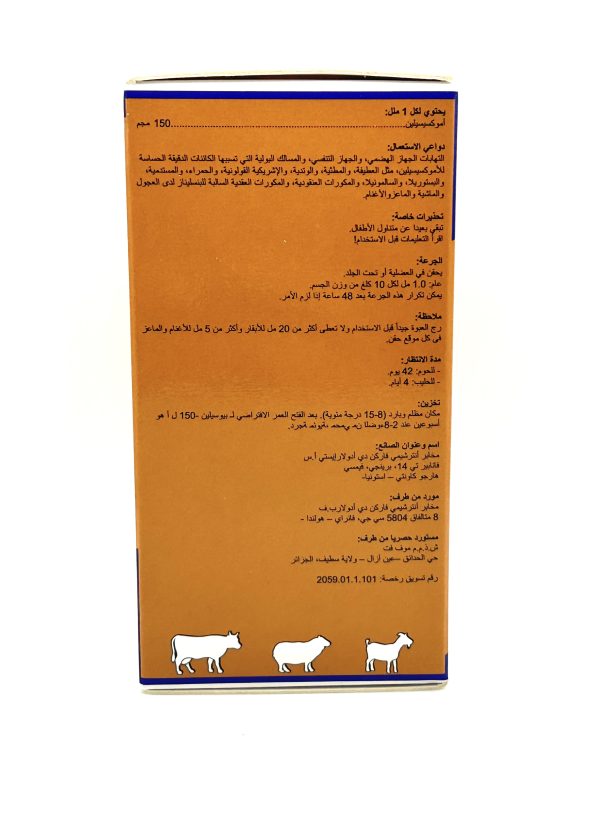 يحتوي لكل 1 ملل:
أموكسيسيلين......................................................150 مجم
دواعي الاستعمال:
التهابات الجهاز الهضمي، والجهاز التنفسي، والمسالك البولية التي تسببها الكائنات الدقيقة الحساسة
للأموكسيسيلين، مثل العطيفة، والمطثية، والوتدية، والإشريكية القولونية، والحمراء، والمستدمية،
والبستوريلا، والسالمونيلا، والمكورات العنقودية، والمكورات العقدية السالبة للبنسليناز لدى العجول
والماشية والماعز والأغنام.
تحذيرات خاصة:
تبقي بعيدا عن متناول الأطفال.
اقرأ التعليمات قبل الاستخدام!
الجرعة:
يحقن في العضلية أو تحت الجلد.
عام: 1.0 مل لكل 10 كلغ من وزن الجسم.
يمكن تكرار هذه الجرعة بعد 48 ساعة إذا لزم الأمر.
ملاحظة:
رج العبوة جيداً قبل الاستخدام ولا تعطى أكثر من 20 مل للأبقار وأكثر من 5 مل للأغنام والماعز
في كل موقع حقن.
مدة الانتظار:
- للحوم: 42 يوم.
- للحليب: 4 أيام.
تخزين:
مكان مظلم وبارد (8-15 درجة مئوية). بعد الفتح العمر الافتراضي لـ بيوسيلين -150 ل أ هو
أسبوعين عند 2-8
اسم وعنوان الصانع:
مخابر أنترشيمي فاركن دي أدولارايستي أ.س
فانابير تي 14، برينجي، فيمسي
هارجو كاونتي – استونيا-
مورد من طرف:
مخابر أنترشيمي فاركن دي أدولارب.ف
8 متالفاق 5804 سي جي، فانراي – هولندا -
مستورد حصريا من طرف:
ش.ذ.م.م موف فت
حي الحدائق –عين أزال – ولاية سطيف، الجزائر
رقم تسويق رخصة: 2059.01.1.101